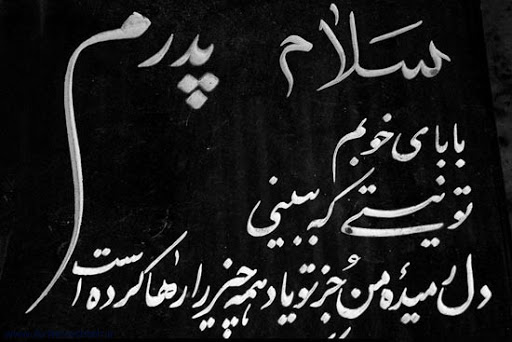 سلام پدرم
بابای خوبم
تو نیستی که ببینی
دل رمیدهٔ من جز تو یاد همه چیز را رها کرده است